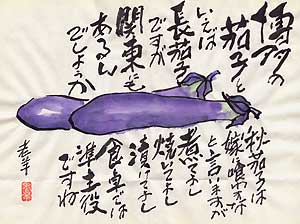 博多の
茄子と
いえば
長茄子
ですが
関東にも
あるん
でしょうか
秋茄子は
嫁に喰わすな
と言いますが
煮てよし
焼いてよし
漬けてよし
食卓では
準主役
ですね